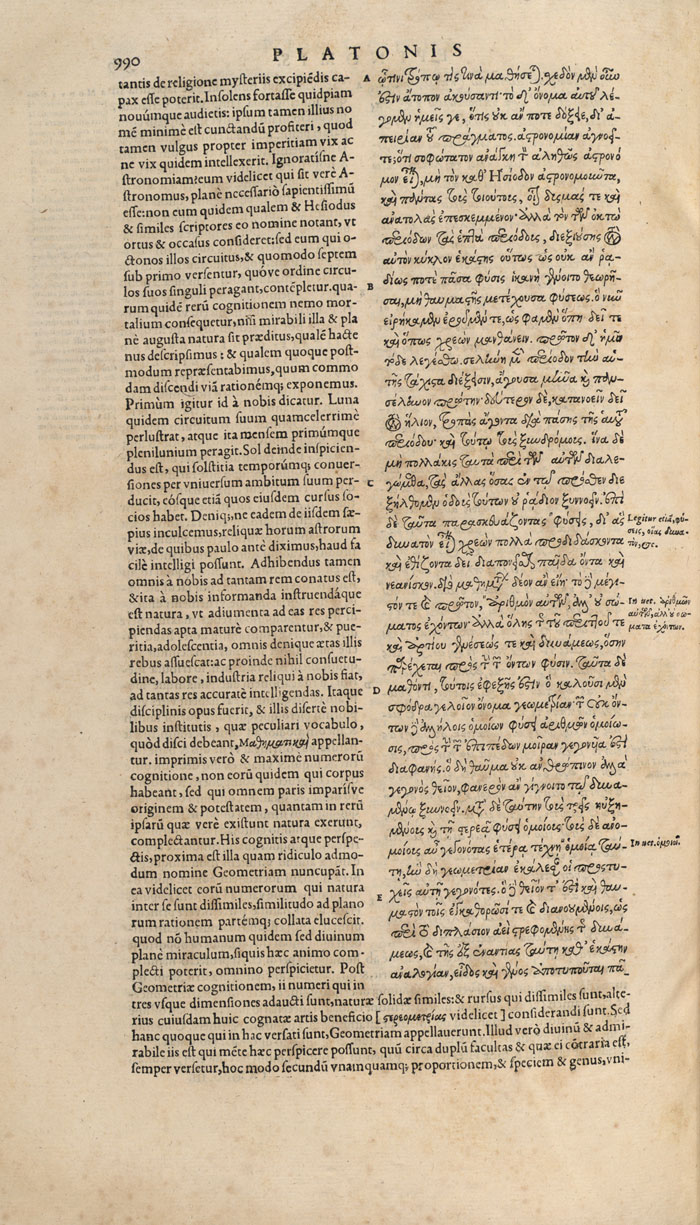 990
PLATONIS
tantis de religione mysteriis excipiẽdis ca-
pax esse poterit. Insolens fortasse quidpiam
nouúmque audietis: ipsum tamen illius no
mẽ minimè est cunctandũ profiteri, quod
tamen vulgus propter imperitiam vix ac
ne vix quidem intellexerit. Ignoratisne A-
stronomiam? eum videlicet qui sit verè A-
stronomus, planè necessariò sapientissimũ
esse: non eum quidem qualem & Hesiodus
& similes scriptores eo nomine notant, vt
ortus & occasus consideret: sed eum qui o-
ctonos illos circuitus, & quomodo septem
sub primo versentur, quóve ordine circu-
los suos singuli peragant, contẽpletur. qua-
rum quidẽ rerũ cognitionem nemo mor-
talium consequetur, nisi mirabili illa & pla
nè augusta natura sit præditus, qualẽ hacte
nus descripsimus: & qualem quoque post-
modum repræsentabimus, quum commo
dam discendi viã rationémq; exponemus.
Primùm igitur id à nobis dicatur. Luna
quidem circuitum suum quamcelerrimè
perlustrat, atque ita mensem primúmque
plenilunium peragit. Sol deinde inspicien-
dus est, qui solstitia temporũmq; conuer-
siones per vniuersum ambitum suum per-
ducit, eósque etiã quos eiusdem cursus so-
cios habet. Deniq; ne eadem de iisdem sæ-
pius inculcemus, reliquæ horum astrorum
viæ, de quibus paulo antè diximus, haud fa
cilè intelligi possunt. Adhibendus tamen
omnis à nobis ad tantam rem conatus est,
& ita à nobis informanda instruendáque
est natura, vt adiumenta ad eas res perci-
piendas apta maturè comparentur, & pue-
ritia, adolescentia, omnis denique ætas illis
rebus assuescat: ac proinde nihil consuetu-
dine, labore, industria reliqui à nobis fiat,
ad tantas res accuratè intelligendas. Itaque
disciplinis opus fuerit, & illis disertè nobi-
libus institutis, quæ peculiari vocabulo,
quòd disci debeant, Μαθηματικαὶ appellan-
tur. imprimis verò & maximè numerorũ
cognitione, non eorũ quidem qui corpus
habeant, sed qui omnem paris imparisve
originem & potestatem, quantam in rerũ
ipsarũ quæ verè existunt natura exerunt,
complectantur. His cognitis atque perspe-
ctis, proxima est illa quam ridiculo admo-
dum nomine Geometriam nuncupãt. In
ea videlicet eorũ numerorum qui natura
inter se sunt dissimiles, similitudo ad plano
rum rationem partémq; collata elucescit.
quod nõ humanum quidem sed diuinum
planè miraculum, siquis hæc animo com-
plecti poterit, omnino perspicietur. Post
Geometriæ cognitionem, ii numeri qui in
tres vsque dimensiones adaucti sunt, naturæ solidæ similes: & rursus qui dissimiles sunt, alte-
rius cuiusdam huic cognatæ artis beneficio [στερεομετρίας videlicet] considerandi sunt. Sed
hanc quoque qui in hac versati sunt, Geometriam appellauerunt. Illud verò diuinũ & admi-
rabile iis est qui mẽte hæc perspicere possunt, quũ circa duplũ facultas & quæ ei cõtraria est,
semper versetur, hoc modo secundũ vnamquamq; proportionem, & speciem & genus, vni-
A
B
C
D
E
ᾧτινι τρόπῳ τὶς τίνα μαθήσεται. σχεδὸν μὲν οὖν
ἐστὶν ἄτοπον ἀκούσαντι· τὸ δ' ὄνομα αὐτοῦ λέ-
γομεν ἡμεῖς γε, ὅτις οὐκ ἄν ποτε δόξειε, δι' ἀ-
πειρίαν τοῦ πράγματος. ἀστρονομίαν ἀγνοεῖ-
τε; ὅτι σοφώτατον ἀνάγκη τὸν ἀληθῶς ἀστρονό
μον εἶναι, μὴ τὸν καθ' Ησίοδον ἀστρονομοῦντα,
καὶ πάντας τοὺς τοιούτους, οἷον δυσμάς τε καὶ
ἀνατολὰς ἐπεσκεμμένον· ἀλλὰ τὸν τῶν ὀκτὼ
περιόδων τὰς ἑπτὰ περιόδους, διεξιούσης τὸν
αὐτὸν κύκλον ἑκάστης οὕτως ὡς οὐκ ἂν ῥᾳ-
δίως ποτὲ πᾶσα φύσις ἱκανὴ γένοιτο θεωρῆ-
σαι, μὴ θαυμαστῆς μετέχουσα φύσεως. ὃ νῦν
εἰρήκαμεν ἐροῦμέν τε, ὥς φαμεν ὅπῃ δεῖ τε
καὶ ὅπως χρεὼν μανθάνειν. πρῶτον δ' ἡμῖν
τόδε λεγέσθω. σελήνη μὲν περίοδον τὴν αὑ-
τῆς τάχιστα διέξεισιν, ἄγουσα μῆνα καὶ παν-
σέληνον πρώτην· δεύτερον δὲ, κατανοεῖν δεῖ
τὸν ἥλιον, τροπὰς ἄγοντα διὰ πάσης τῆς αὑτοῦ
περιόδου· καὶ τούτῳ τοὺς ξυνδρόμοις. ἵνα δὲ
μὴ πολλάκις ταυτὰ περὶ τῶν αὐτῶν διαλε-
γώμεθα, τὰς ἄλλας ὅσας ἐν τοῖς πρόσθεν διε
ξήλθομεν ὁδοὺς τούτων οὐ ῥᾴδιον ξυννοεῖν. ἐπὶ
δὲ ταῦτα παρασκευάζοντας φύσεις, δι' ἃς
δυνατὸν εἶναι χρεὼν πολλὰ προδιδάσκοντα
καὶ ἐθίζοντα δεῖ διαπονεῖσθαι παῖδα ὄντα καὶ
νεανίσκον. διὸ μαθημάτων δέον ἂν εἴη· τὸ δὲ μέγι-
στόν τε καὶ πρῶτον, ἀριθμὸν αὐτῶν, ἀλλ' οὐ σώ-
ματος ἐχόντων· ἀλλὰ ὅλης τῆς τοῦ περιττοῦ τε
καὶ ἀρτίου γενέσεώς τε καὶ δυνάμεως, ὅσην
παρέχεται πρὸς τὴν τῶν ὄντων φύσιν. ταῦτα δὲ
μαθόντι, τούτοις ἐφεξῆς ἐστὶν ὃ καλοῦσι μὲν
σφόδρα γελοῖον ὄνομα γεωμετρίαν τῶν οὐκ ὄν-
των δὲ ἀλλήλοις ὁμοίων φύσει ἀριθμῶν ὁμοίω-
σις, πρὸς τὴν τῶν ἐπιπέδων μοῖραν γεγονυῖά ἐστι
διαφανής. ὃ δὴ θαῦμα οὐκ ἀνθρώπινον ἀλλὰ
γεγονὸς θεῖον, φανερὸν ἂν γίγνοιτο τῷ δυνα-
μένῳ ξυννοεῖν. μετὰ δὲ ταύτην τοὺς τρὶς ηὐξη-
μένους καὶ τῇ στερεᾷ φύσει ὁμοίους· τοὺς δὲ ἀνο-
μοίους αὖ γεγονότας ἑτέρᾳ τέχνῃ ὁμοία ταύ-
τῃ, ἣν δὴ γεωμετρίαν ἐκάλεσαν οἱ προστυ-
χεῖς αὐτῇ γεγονότες. ὃ δὲ θεῖόν τ' ἐστὶ καὶ θαυ-
μαστὸν τοῖς ἐγκαθορῶσί τε καὶ διανουμένοις, ὡς
περὶ τὸ διπλάσιον ἀεὶ στρεφομένης τῆς δυνά-
μεως, καὶ τῆς ἐξ ἐναντίας ταύτῃ καθ' ἑκάστην
ἀναλογίαν, εἶδος καὶ γένος ἀποτυποῦται πᾶ-
Legitur etiã, φύ-
σεις, οἵας δυνα-
τὸν, &c.
In uet. ἀριθμῶν
αὐτῶν, ἀλλ' οὐ σώ-
ματα ἐχόντων.
In uet. ὁμοίᾳ.